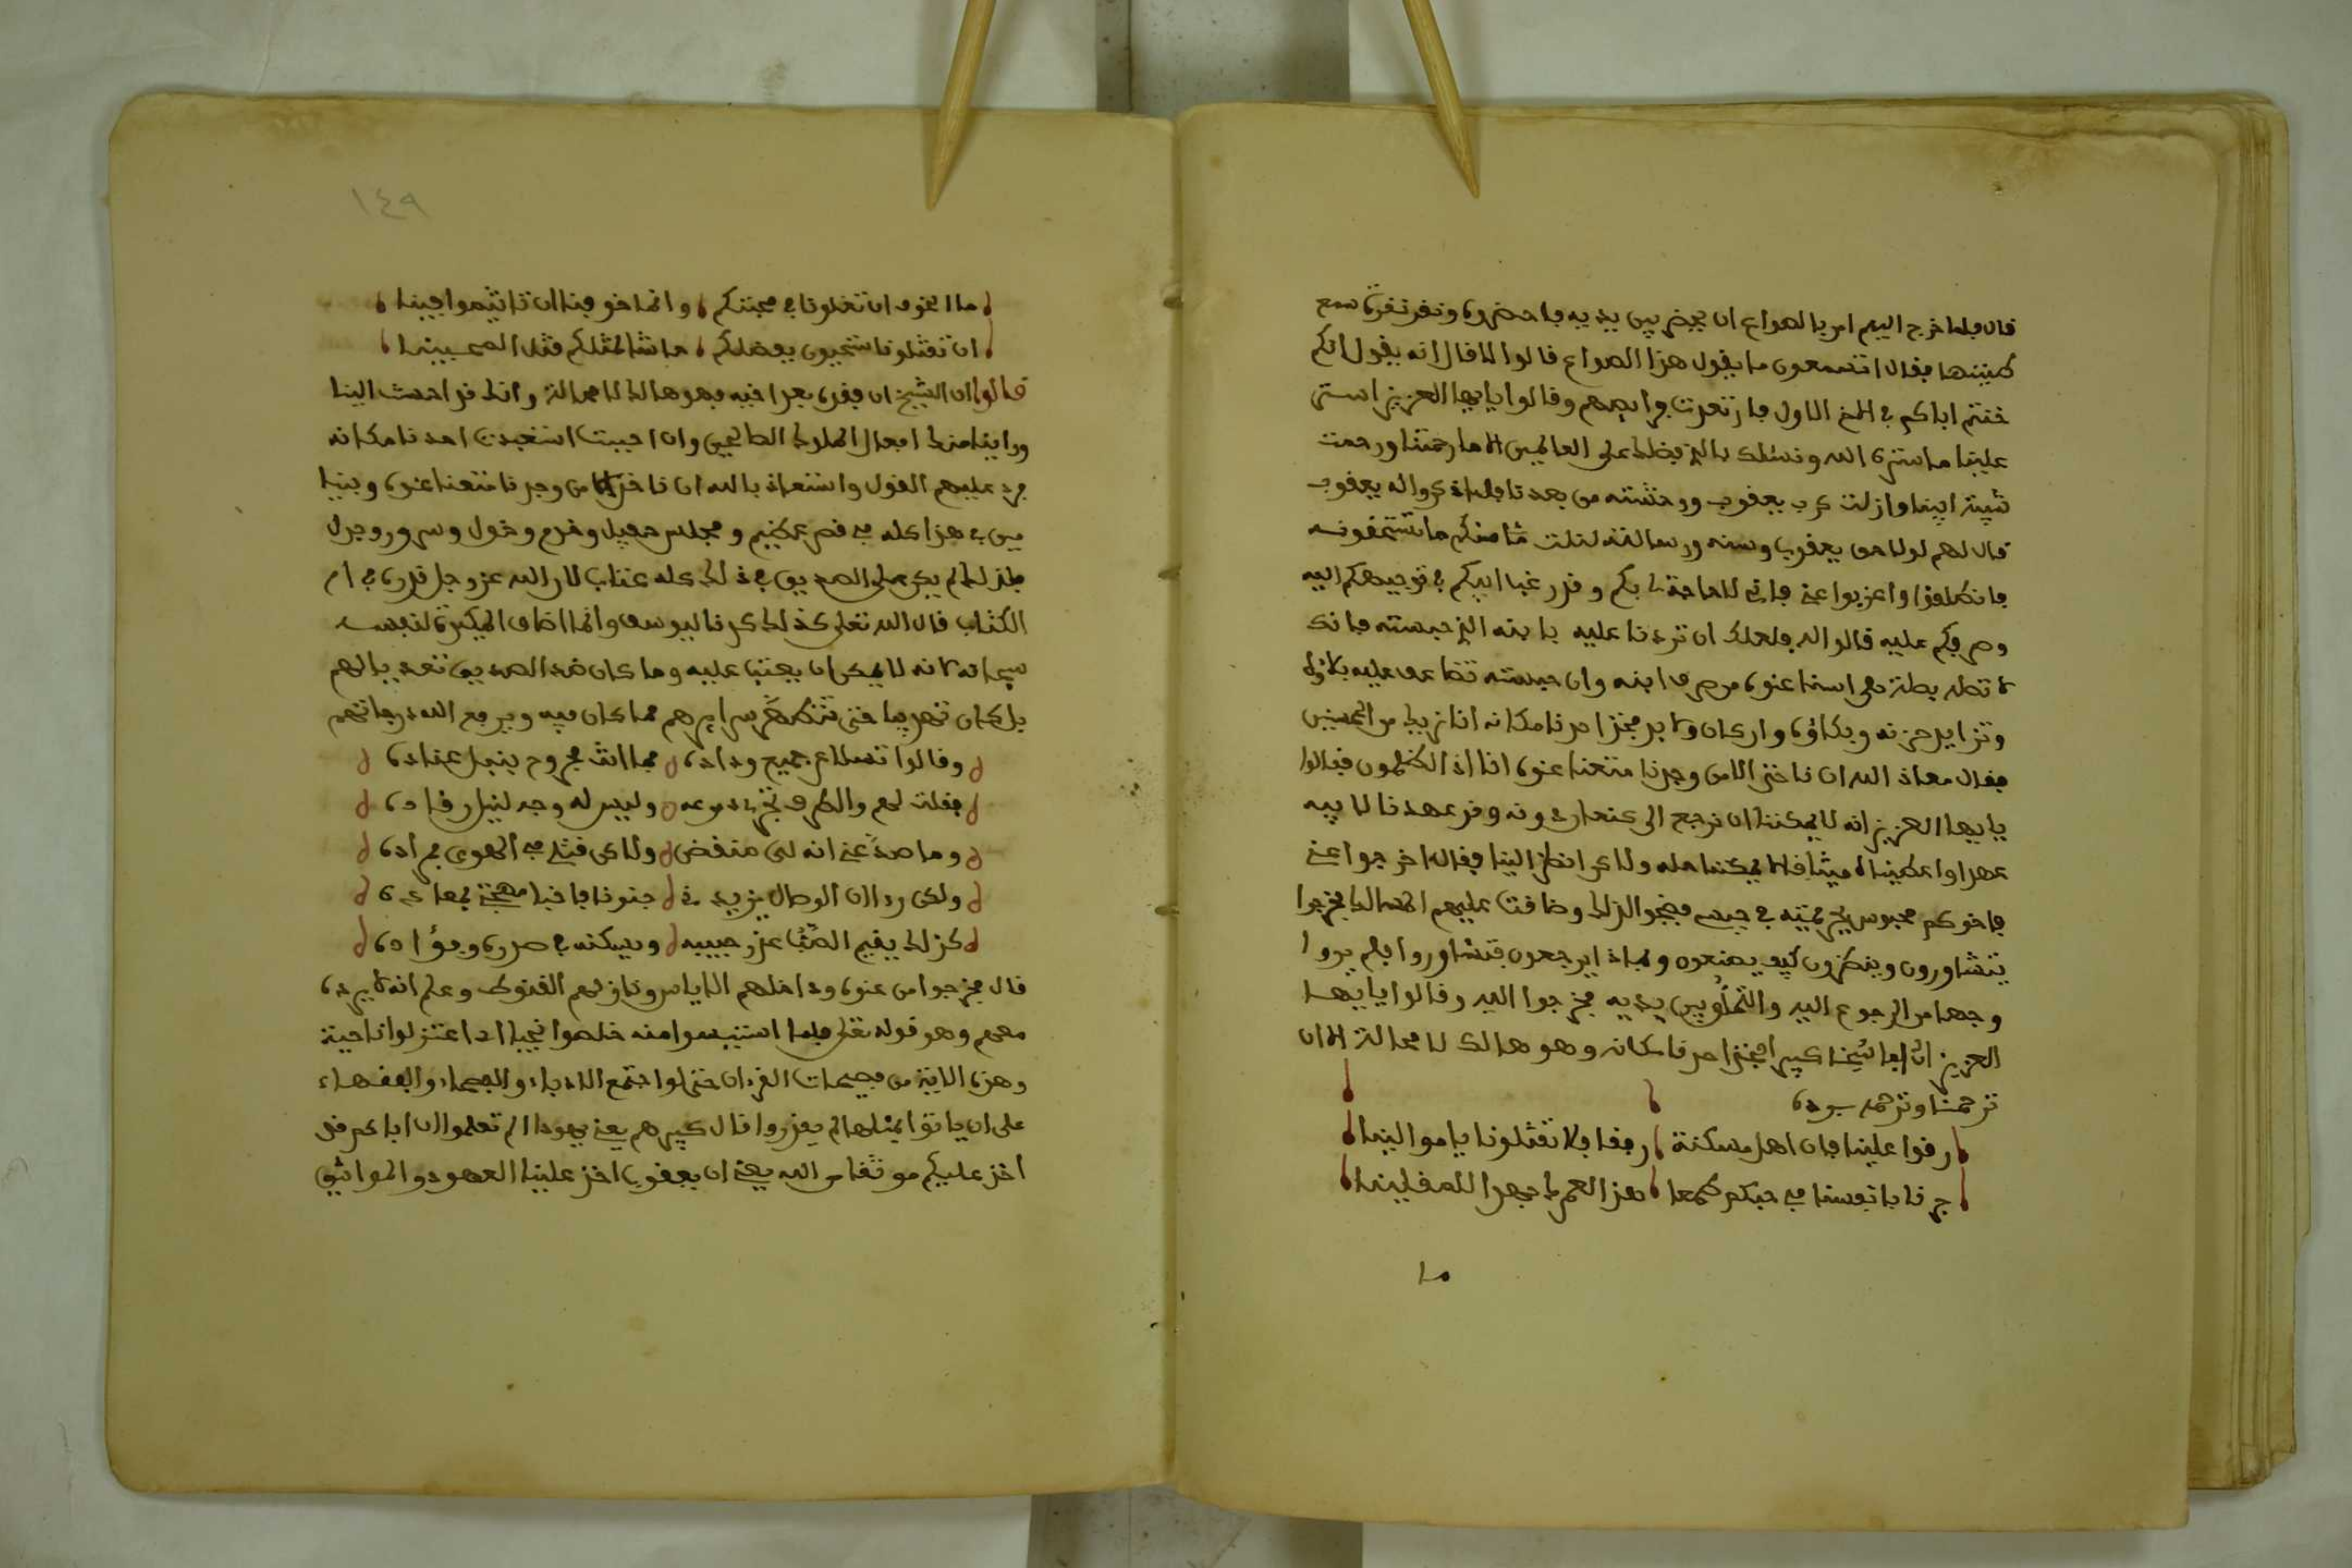 قال فلما خرج اليهم امر بالصواع ان يحضر بين يديه فاحضروه ونقر نقرة سمع
طنينها فقال اتسمعون ما يقول هذا الصواع قالوا لا قال انه يقول انكم
خنتم اباكم في الاخ الاول فارتعدت فرايصهم وقالوا يا يها العزيز استر
علينا ما ستره الله ونسئلك بالذي فضلك على العالمين الا ما رحمتنا ورحمت
شيبة ابينا وازلت كرب يعقوب ووحشته من بعدنا فلما ذكروا له يعقوب
قال لهم لولا حق يعقوب وسنه ورسالته لنلت منكم ما تستحقونه
فانطلقوا واعزبوا عني فاني لا حاجة لي بكم وقد رغب ابيكم في توجيهكم اليه
وصرفكم عليه قالوا له فلعلك ان تردنا عليه بابنه الذي حبسته فانك
لا تصله بصلة هي اسنا عنده من صرف ابنه وان حبسته تضاعف عليه بلاؤه
وتزايد حزنه وبكاؤه وان كان ولابد فخذ احدنا مكانه انا نريك من المحسنين
فقال معاذ الله ان ناخذ الا من وجدنا متعنا عنده انا اذا لظلمون فقالوا
يا يها العزيز انه لا يمكننا ان نرجع الى كنعان دونه وقد عهدنا لابيه
عهدا واعطيناه ميثاقا لا يمكننا حله ولاكن انظر الينا فقال اخرجوا عني
فاخوكم محبوس في حبس فضجوا لذلك وضاقت عليهم المسالك فخرجوا
يتشاورون وينظرون كيف يصنعون وبماذا يرجعون فتشاوروا فلم يروا
وجها من الرجوع اليه والتملق بين يديه فخرجوا اليه وقالوا يا يها
العزيز ان له ابا شيخا كبيرا فخذ احدنا مكانه وهو هالك لا محالة الا ان
ترحمنا وترحمه برده
رفوا علينا فان اهل مسكنة رفقا فلا تقتلونا يا موالينا
جرنا بانفسنا في حبكم طمعا هذا العمرك جهد للمقلينا
ما
ما الخوف ان تقتلونا في محبتكم وانما خوفنا ان تاثموا فينا
ان تقتلونا ستحيون بفضلكم حاشا لمثلكم قتل المحبينا
قالوا ان الشيخ ان فقده بعد اخيه فهو هالك لا محالة وانك قد احسنت الينا
وراينا منك افعال الملوك الصالحين وان احببت استعبدت احدنا مكانه
فرد عليهم القول واستعاذ بالله ان ناخذ الا من وجدنا متعنا عنده وبنيا
مين في هذا كله في قصر عظيم ومجلس جميل وخدم وخول وسرور وجدل
فلذلك لم يكن على الصديق في ذلك كله عتاب لان الله عز وجل قدره في ام
الكتاب قال الله تعلى كذلك كدنا ليوسف وانما اضاف المكيدة لنفسه
سبحانه لانه لا يمكن ان يعتب عليه وما كان قصد الصديق تعذيبا لهم
بل كان تهذيبا حتى تتطهر سرايرهم مما كان فيه ويرفع الله درجاتهم
وقالوا تسلا عن جميع وداده فما انت مجروح بنبل عناده
فقلت لهم والطرف تجري دموعه وليس له وجد لنيل رقاده
وما صد عني انه لي منقض ولاكن قتلي في الهوى مراده
ولكن راان الوصال يزيد في جنونا فاخبا مهجتي بعاده
كذلك يقيم الصب عذر حبيبه ويسكنه في صدره وفؤاده
قال فخرجوا من عنده وداخلهم الاياس ونازلهم القنوط وعلم انه لا يرده
معهم وهو قوله تعلى فلما استيئسوا منه خلصوا نجيا اي اعتزلوا ناحية
وهذه الاية من فصيحات القرءان حتى لو اجتمع الادباء والفصحاء والفقهاء
على ان ياتوا بمثلها لم يقدروا قال كبيرهم يعني يهودا الم تعلموا ان اباكم قد
اخذ عليكم موثقا من الله يعني ان يعقوب اخذ علينا العهود والمواثيق
١٤٩